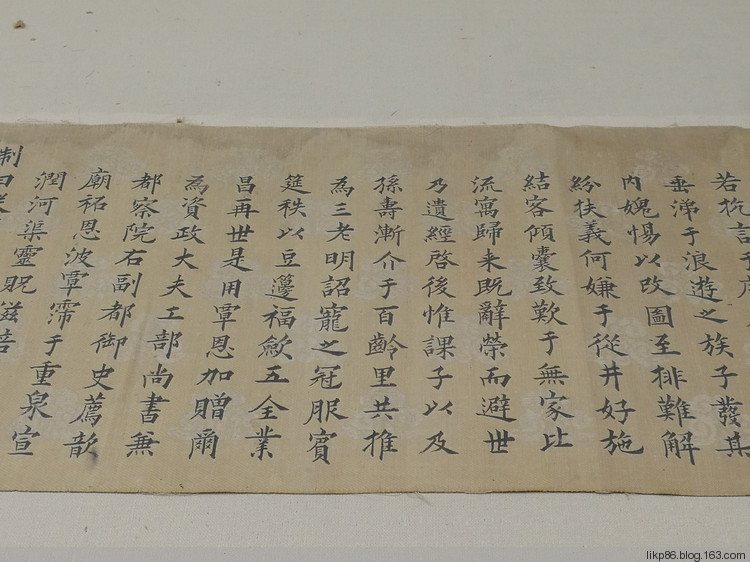 若抗言于
垂涕于浪遊之族子發其
内媿惕以改圖至排難解
紛扶義何嫌于從井好施
結客傾囊致歎于無家比
流寓歸来既辭榮而避世
乃遺經啓後惟課子以及
孫壽漸介于百齡里共推
為三老明詔寵之冠服賓
筵秩以豆籩福歛五全業
昌再世是用覃恩加贈爾
為資政大夫工部尚書兼
都察院右副都御史薦歆
廟祏恩波覃霈于重泉宣
潤河渠靈貺滋
制曰
likp86.blog.163.com